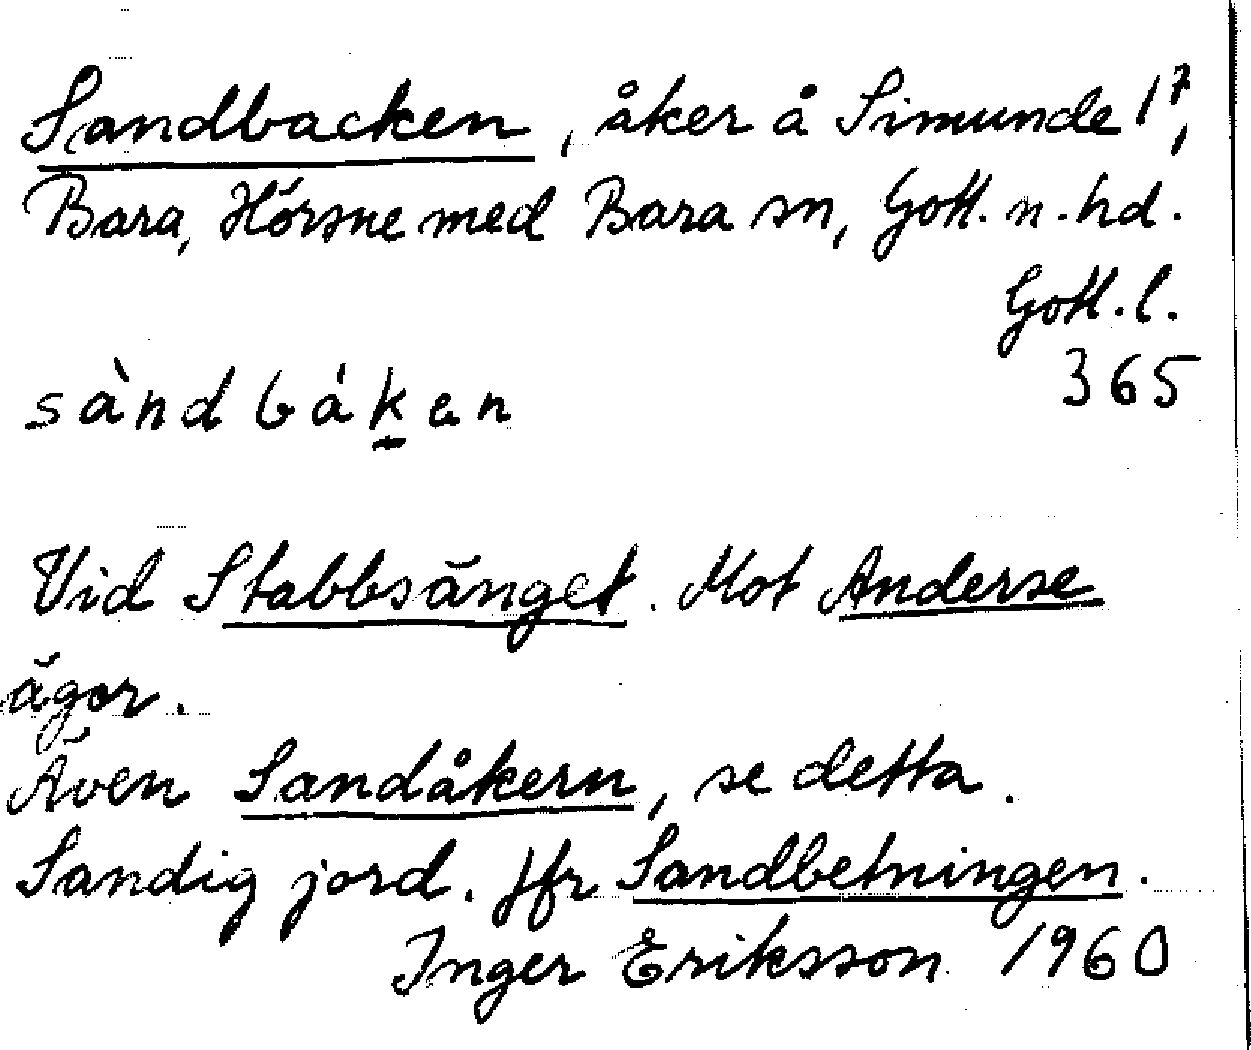 Sandbacken, åker å Simunde 1⁷,
Bara, Hörsne med Bara sn, Gotl. n. hd.
Gotl. l.
365
sàndbákan
Vid Stabbsänget. Mot Anderse
ägor.
Även Sandåkern, se detta.
Sandig jord. Jfr Sandbetningen.
Inger Eriksson 1960